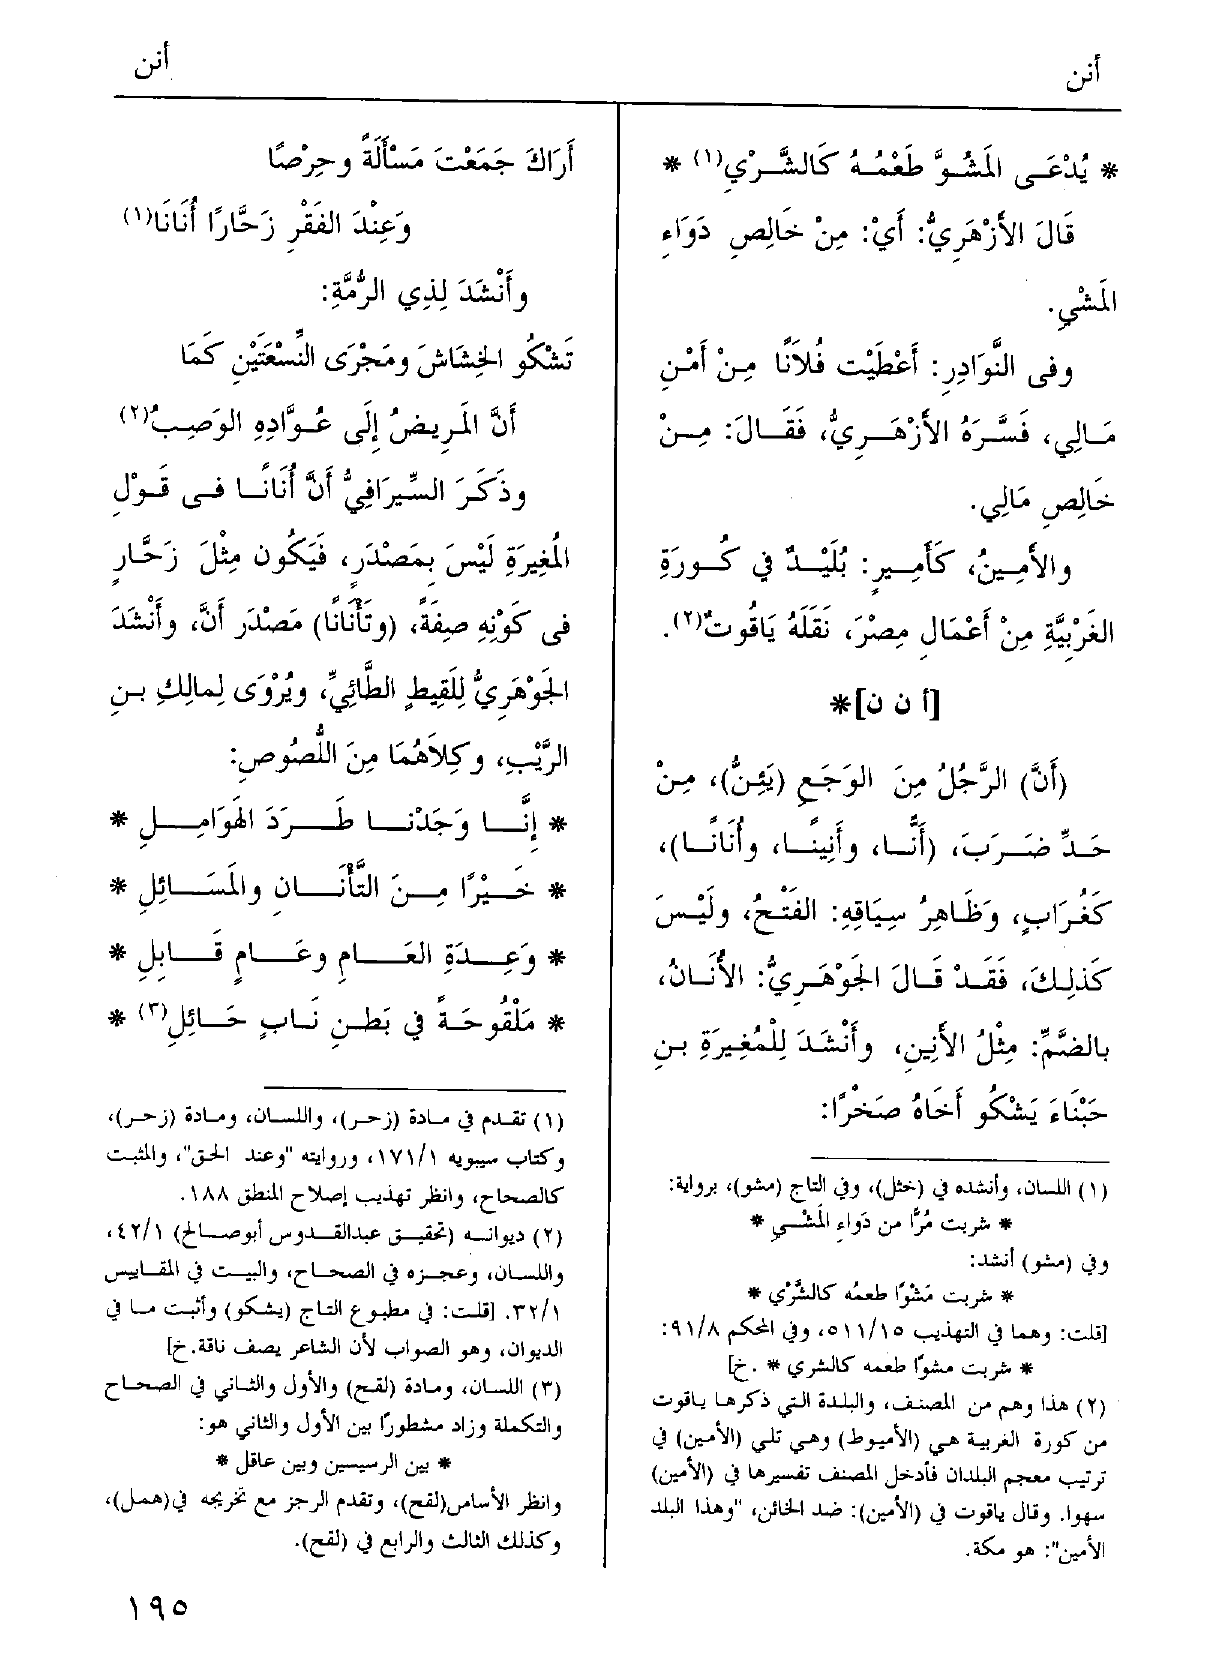 أنن
أنن
* يُدْعَى المَشُوَّ طَعْمُهُ كَالشَّرْيِ(١) *
قَالَ الأَزْهَرِيُّ: أَيْ: مِنْ خَالِصِ دَوَاءِ
المَشْيِ.
وفى النَّوَادِرِ: أَعْطَيْت فُلَانًا مِنْ أَمْنِ
مَالِي، فَسَّرَهُ الأَزْهَرِيُّ، فَقَالَ: مِنْ
خَالِصِ مَالِي.
والأَمِينُ، كَأَمِيرٍ: بُلَيْدٌ في كُورَةِ
الغَرْبِيَّةِ مِنْ أَعْمَالِ مِصْرَ، نَقَلَهُ يَاقُوتٌ(٢).
[أ ن ن]*
(أَنَّ) الرَّجُلُ مِنَ الوَجَعِ (يَئِنُّ)، مِنْ
حَدِّ ضَرَبَ، (أَنًّا، وأَنِينًا، وأُنَانًا)،
كَغُرَابٍ، وَظَاهِرُ سِيَاقِهِ: الفَتْحُ، ولَيْسَ
كَذلِكَ، فَقَدْ قَالَ الجَوْهَرِيُّ: الأُنَانُ،
بالضَّمِّ: مِثْلُ الأَنِينِ، وأَنْشَدَ لِلْمُغِيرَةِ بنِ
حَبْنَاءَ يَشْكُو أَخَاهُ صَخْرًا:
(١) اللسان، وأنشده في (خثل)، وفي التاج (مشو)، برواية:
* شربت مُرًّا من دَواءِ المَشْيِ *
وفي (مشو) أنشد:
* شربت مَشْوًا طعمُه كالشَّرْي *
[قلت: وهما في التهذيب ٥١١/١٥، وفي المحكم ٩١/٨:
* شربت مشوًا طعمه كالشري * . خ]
(٢) هذا وهم من المصنف، والبلدة التي ذكرها ياقوت
من كورة الغربية هي (الأميوط) وهي تلي (الأمين) في
ترتيب معجم البلدان فأدخل المصنف تفسيرها في (الأمين)
سهوا. وقال ياقوت في (الأمين): ضد الخائن، "وهذا البلد
الأمين": هو مكة.
أَرَاكَ جَمَعْتَ مَسْأَلَةً وحِرْصًا
وَعِنْدَ الفَقْرِ زَحَّارًا أُنَانَا(١)
وأَنْشَدَ لِذِي الرُّمَّةِ:
تَشْكُو الخِشَاشَ ومَجْرَى النِّسْعَتَيْنِ كَمَا
أَنَّ المَرِيضُ إِلَى عُوَّادِهِ الوَصِبُ(٢)
وذَكَرَ السِّيرَافِيُّ أَنَّ أُنَانًا فى قَوْلِ
المُغِيرَةِ لَيْسَ بِمَصْدَرٍ، فَيَكُون مِثْلَ زَحَّارٍ
فى كَوْنِهِ صِفَةً، (وتَأْنَانًا) مَصْدَر أَنَّ، وأَنْشَدَ
الجَوْهَرِيُّ لِلَقِيطٍ الطَّائِيِّ، ويُرْوَى لِمالِكِ بنِ
الرَّيْبِ، وكِلاَهُمَا مِنَ اللُّصُوصِ:
* إِنَّا وَجَدْنَا طَرَدَ الهَوَامِلِ *
* خَيْرًا مِنَ التَّأْنَانِ والمَسَائِلِ *
* وَعِدَةِ العَامِ وعَامٍ قَابِلِ *
* مَلْقُوحَةً في بَطْنِ نَابٍ حَائِلِ(٣) *
(١) تقدم في مادة (زحر)، واللسان، ومادة (زحر)،
وكتاب سيبويه ١٧١/١، وروايته "وعند الحق"، والمثبت
كالصحاح، وانظر تهذيب إصلاح المنطق ١٨٨.
(٢) ديوانه (تحقيق عبدالقدوس أبوصالح) ٤٢/١،
واللسان، وعجزه في الصحاح، والبيت في المقاييس
٣٢/١. [قلت: في مطبوع التاج (يشكو) وأثبت ما في
الديوان، وهو الصواب لأن الشاعر يصف ناقة. خ]
(٣) اللسان، ومادة (لقح) والأول والثاني في الصحاح
والتكملة وزاد مشطورًا بين الأول والثاني هو:
* بين الرسيسين وبين عاقل *
وانظر الأساس(لقح)، وتقدم الرجز مع تخريجه في(همل)،
وكذلك الثالث والرابع في (لقح).
١٩٥